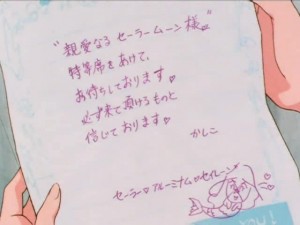 "親愛なる セーラームーン様"
特等席をあけて、
お待ちしております♥
必ず来て頂けるもっと
信じております♥
かしこ
セーラー♥アルーミナムセイレーン
YOU!